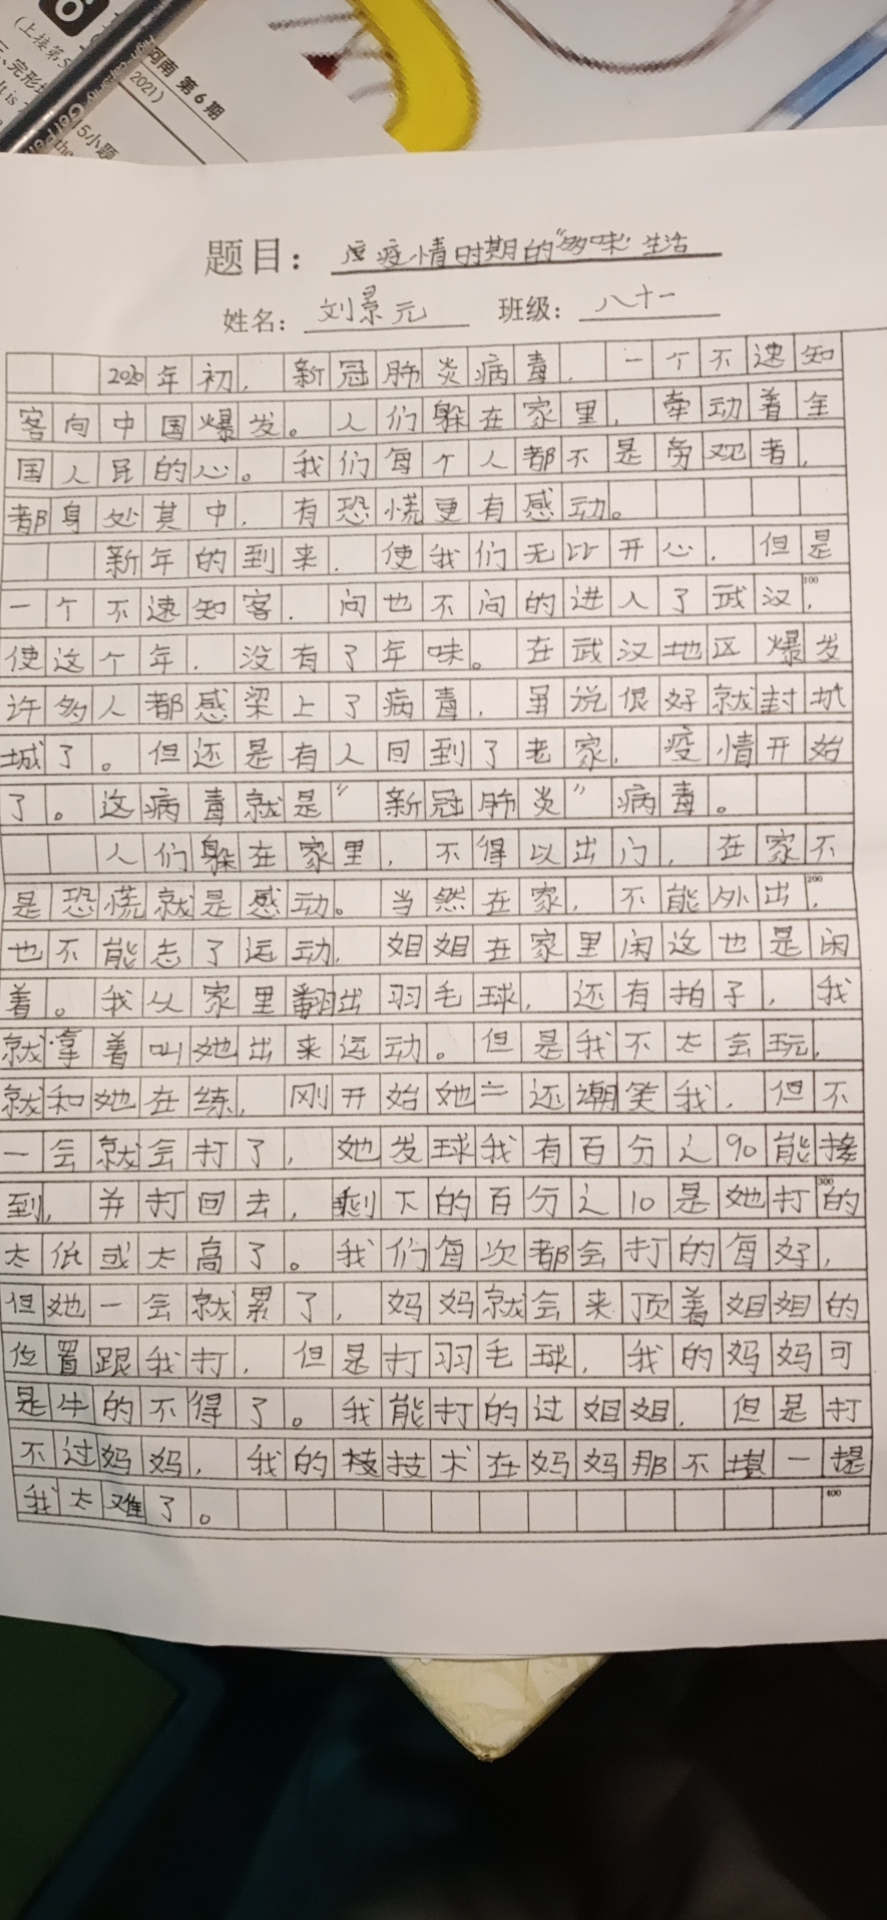 (上接第5
河南 第6期
2021)
完形填
It is
15小题
the
题目：疫情时期的“多味”生活
姓名：刘景元 班级：八十一
2020年初，新冠肺炎病毒，一个不速知
客向中国爆发。人们躲在家里，牵动着全
国人民的心。我们每个人都不是旁观者，
都身处其中，有恐慌更有感动。
新年的到来，使我们无比开心，但是
一个不速知客，问也不问的进入了武汉，
使这个年，没有了年味。在武汉地区爆发
许多人都感染上了病毒，虽说很好就封城
城了。但还是有人回到了老家，疫情开始
了。这病毒就是“新冠肺炎”病毒。
人们躲在家里，不得以出门，在家不
是恐慌就是感动。当然在家，不能外出，
也不能忘了运动，姐姐在家里闲这也是闲
着。我从家里翻出羽毛球，还有拍子，我
就拿着叫她出来运动。但是我不太会玩，
就和她在练，刚开始她还潮笑我，但不
一会就会打了，她发球我有百分之90能接
到，并打回去，剩下的百分之10是她打的
太低或太高了。我们每次都会打的每好，
但她一会就累了，妈妈就会来顶着姐姐的
位置跟我打，但是打羽毛球，我的妈妈可
是牛的不得了。我能打的过姐姐，但是打
不过妈妈，我的技术在妈妈那不堪一提
我太难了。
100
200
300
400